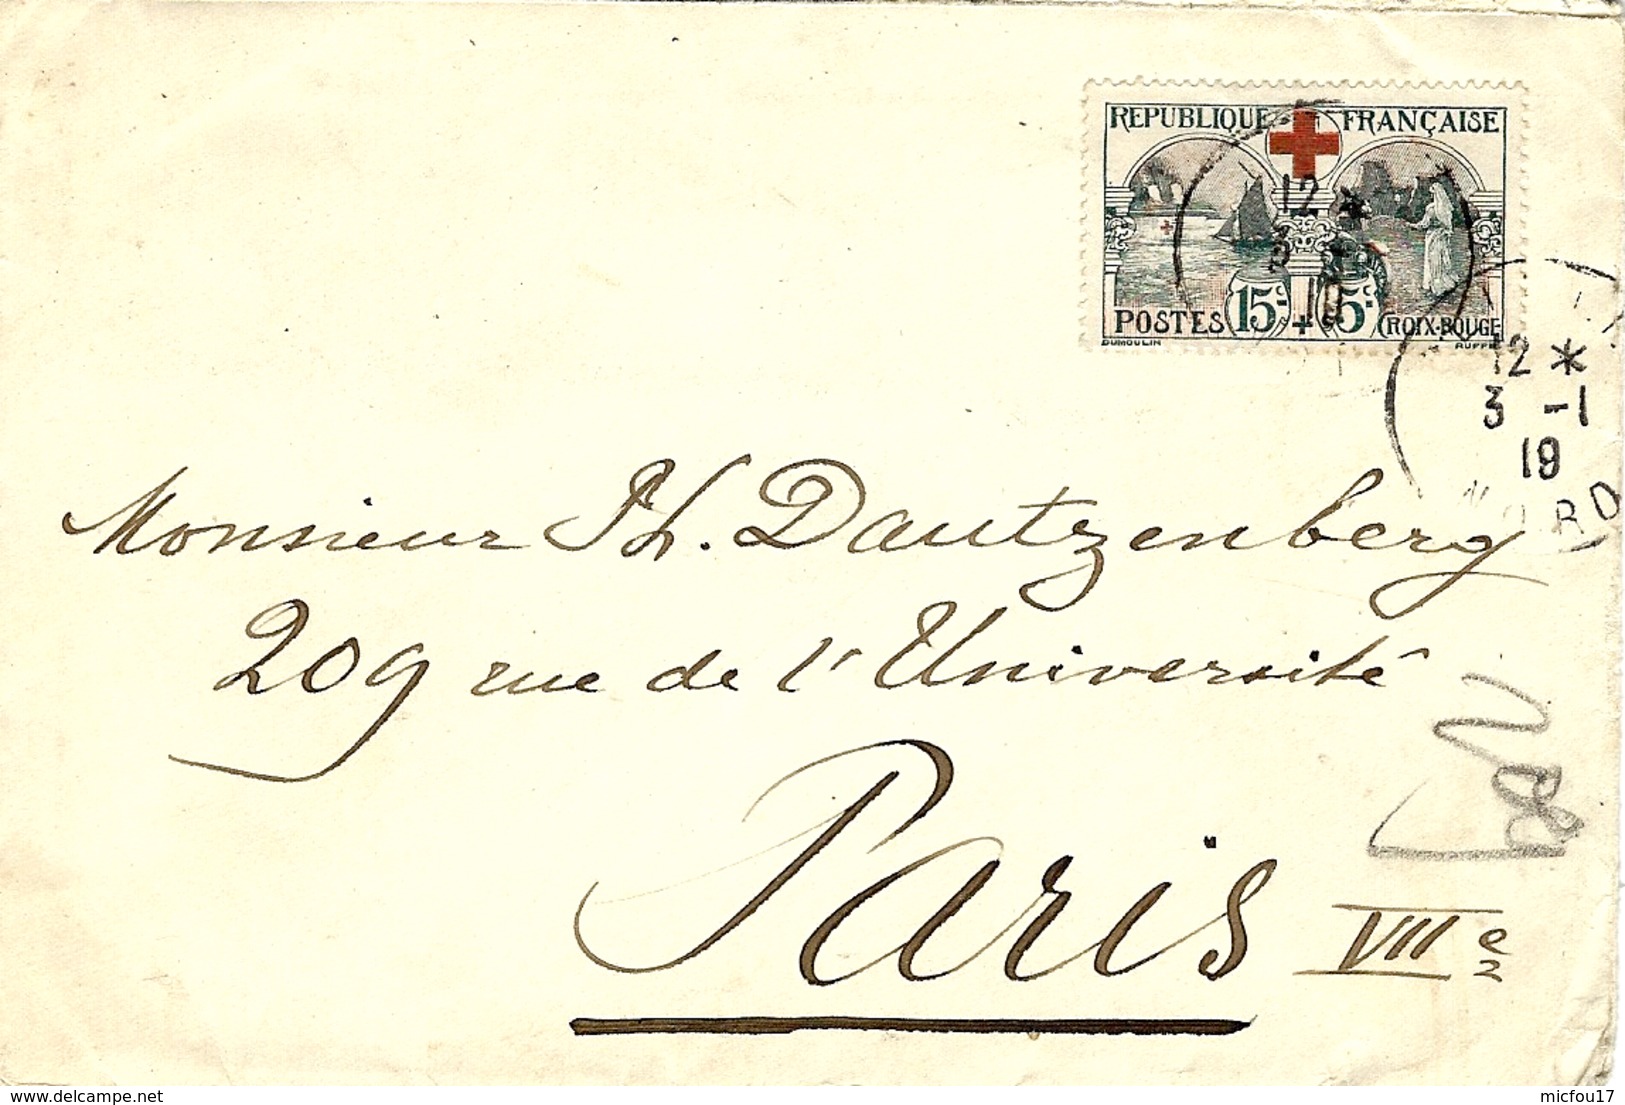 REPUBLIQUE FRANÇAISE
12 *
3
POSTES 15c + 5c CROIX-ROUGE
DUMOULIN RUFFE
12 *
3 -1
19
NORD
Monsieur Ph. Dautzenberg
209 rue de l'Université
Paris VIIe
delcampe.net
micfou17